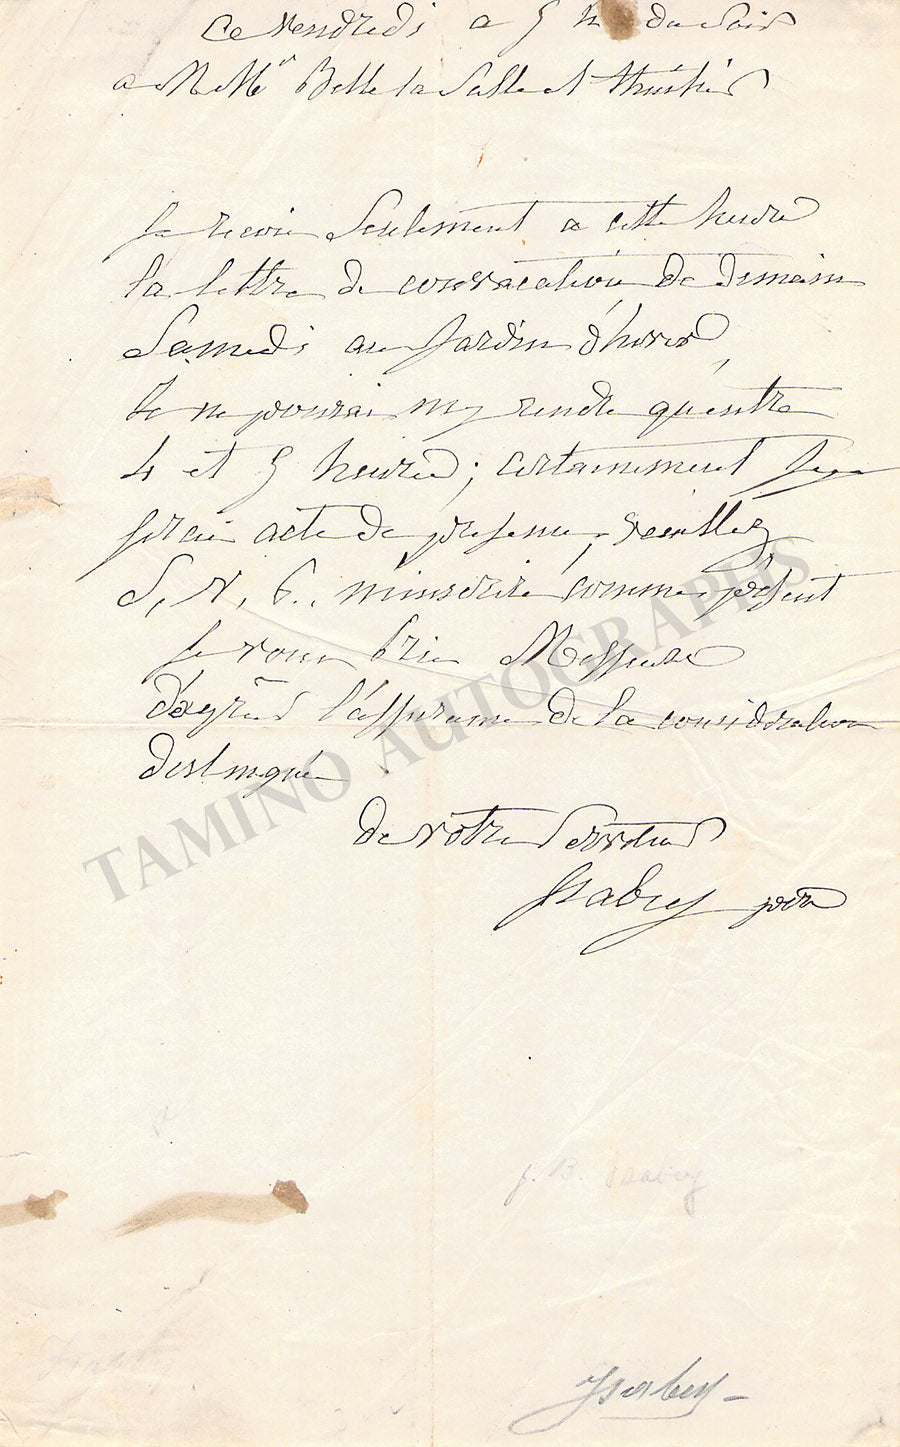 Ce Vendredi a 5 h du Soir
a M Mrs Belle la Salle et
Je recois Seulement a cette heure
la lettre de convocation de demain
Samedi au Jardin d'hiver,
Je ne pourai my rendre quentre
4 et 5 heures; certainement
ferai acte de presence, veuillez
S. V. P. minscrire comme présent
Je vous prie Messieurs
d'agréer l'assurance de la consideration
destingué
de votre Serviteur
JIsabey père
J. B. Isabey
Isabey
TAMINO AUTOGRAPHS